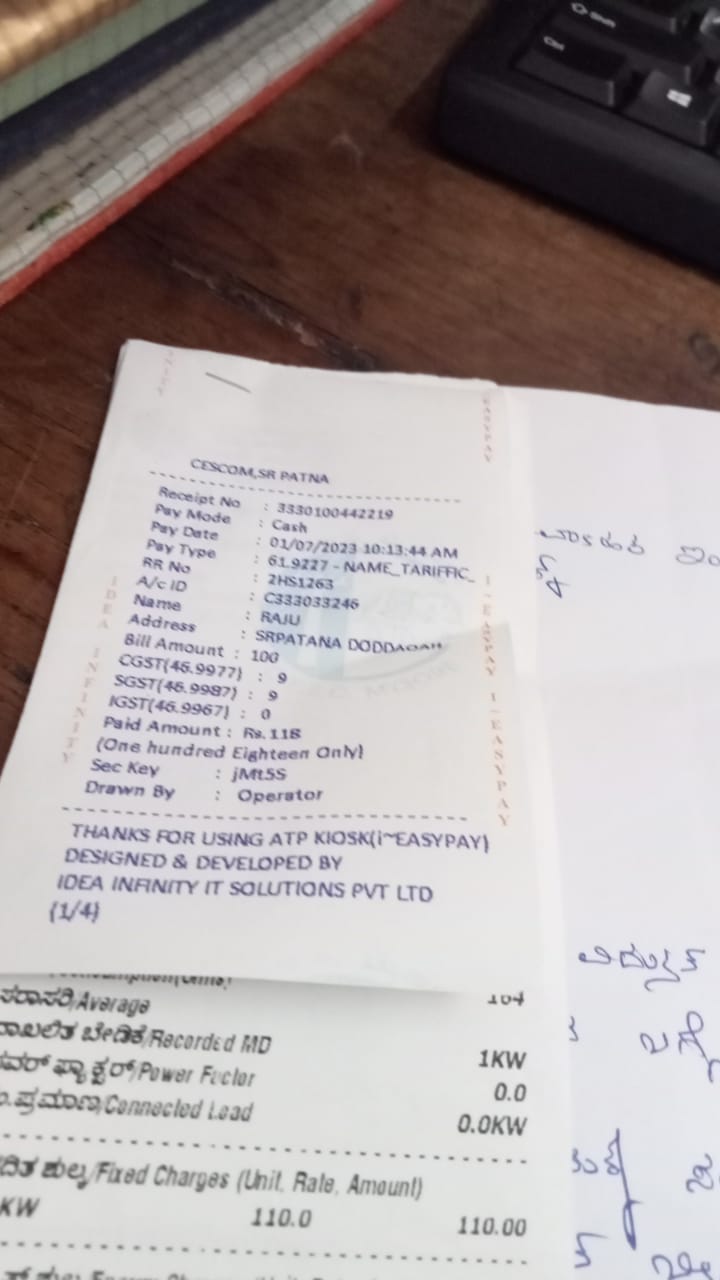 CESCOM,SR PATNA
Receipt No : 3330100442219
Pay Mode : Cash
Pay Date : 01/07/2023 10:13:44 AM
Pay Type : 61.9227 - NAME_TARIFFIC_
RR No : 2HS1263
A/c ID : C333033246
Name : RAJU
Address : SRPATANA
Bill Amount : 100
CGST(46.9977) : 9
SGST(46.9987) : 9
IGST(46.9967) : 0
Paid Amount : Rs.118
(One hundred Eighteen Only)
Sec Key : jMt5S
Drawn By : Operator
THANKS FOR USING ATP KIOSK(i~EASYPAY)
DESIGNED & DEVELOPED BY
IDEA INFINITY IT SOLUTIONS PVT LTD
(1/4)
IDEA INFINITY
I~EASYPAY I~EASYPAY
EASYPAY
ಸರಾಸರಿ/Average
ದಾಖಲಿತ ಬೇಡಿಕೆ/Recorded MD 1KW
ಪವರ್ ಫ್ಯಾಕ್ಟರ್/Power Factor 0.0
ಪ್ರಮಾಣ/Connected Load 0.0KW
ಶುಲ್ಕ/Fixed Charges (Unit, Rate, Amount)
KW 110.0 110.00